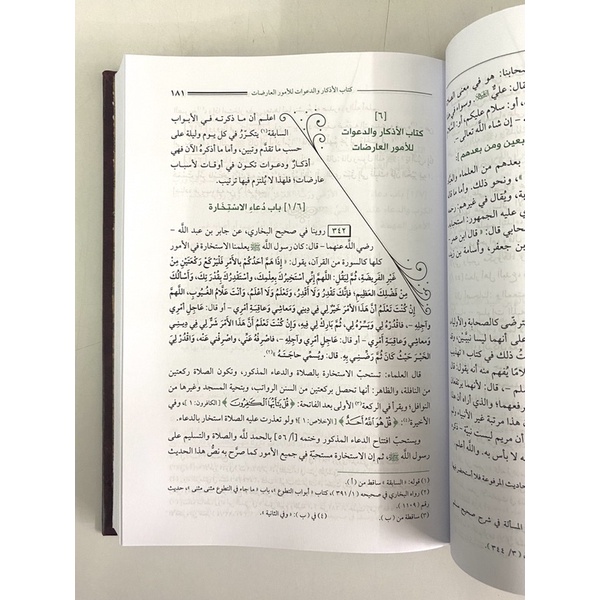 كتاب الأذكار والدعوات للأمور العارضات
١٨١
[٦]
كتاب الأذكار والدعوات
للأمور العارضات
اعلم أن ما ذكرته في الأبواب
السابقة(١) يتكرّر في كل يوم وليلة على
حسب ما تقدَّم وتبين، وأما ما أذكرُه الآن فهي
أذكارٌ ودعوات تكون في أوقات لأسباب
عارضات؛ فلهذا لا يُلتزم فيها ترتيب.
[١/٦] باب دُعاءِ الاسْتِخارة
٣٤٢ روينا في صحيح البخاري، عن جابر بن عبد الله -
رضي الله عنهما - قال: كان رسول الله ﷺ يعلمنا الاستخارة في الأمور
كلها كالسورة من القرآن، يقول: «إِذَا هَمَّ أَحَدُكُمْ بِالأَمْرِ فَلْيَرْكَعْ رَكْعَتَيْنِ مِنْ
غَيْرِ الفَرِيضَةِ، ثُمَّ لِيَقُلِ: اللَّهُمَّ إِنِّي أَسْتَخِيرُكَ بِعِلْمِكَ، وأَسْتَقْدِرُكَ بِقُدْرَتِكَ، وَأَسْأَلُكَ
مِنْ فَضْلِكَ العَظِيمِ؛ فإِنَّكَ تَقْدِرُ وَلَا أَقْدِرُ، وَتَعْلَمُ وَلَا أَعْلَمُ، وَأَنْتَ عَلَّامُ الغُيُوبِ، اللَّهُمَّ
إِنْ كُنْتَ تَعْلَمُ أَنَّ هَذَا الأَمْرَ خَيْرٌ لِي فِي دِينِي وَمَعَاشِي وَعَاقِبَةِ أَمْرِي - أو قال: عَاجِلِ أَمْرِي
وآجِلِهِ - فَاقْدُرْهُ لِي وَيَسِّرْهُ لِي، ثُمَّ بَارِكْ لِي فِيهِ، وَإِنْ كُنْتَ تَعْلَمُ أَنَّ هَذَا الأَمْرَ شَرٌّ لِي فِي دِينِي
وَمَعَاشِي وَعَاقِبَةِ أَمْرِي - أو قال: عَاجِلِ أَمْرِي وَآجِلِهِ -، فَاصْرِفْهُ عَنِّي، وَاصْرِفْنِي عَنْهُ، وَاقْدُرْ لِيَ
الخَيْرَ حَيْثُ كَانَ ثُمَّ رَضِّنِي بِهِ. قال: ويُسَمِّي حاجَتَهُ»(٢).
قال العلماء: تستحبّ الاستخارة بالصلاة والدعاء المذكور، وتكون الصلاة ركعتين
من النافلة، والظاهر: أنها تحصل بركعتين من السنن الرواتب، وبتحية المسجد وغيرها من
النوافل؛ ويقرأ في الركعة(٣) الأولى بعد الفاتحة: ﴿قُلْ يَا أَيُّهَا الْكَافِرُونَ﴾ [الكافرون: ١] وفي
الأخيرة(٤): ﴿قُلْ هُوَ اللَّهُ أَحَدٌ﴾ [الإخلاص: ١] ولو تعذرت عليه الصلاة استخار بالدعاء.
ويستحبّ افتتاح الدعاء المذكور وختمه [٥٦/أ] بالحمد لله والصلاة والتسليم على
رسول الله ﷺ، ثم إن الاستخارة مستحبّة في جميع الأمور كما صرَّح به نصُّ هذا الحديث
(١) قوله: «السابقة» ساقط من (أ).
(٢) رواه البخاري في صحيحه (١/ ٣٩١)، كتاب «أبواب التطوع» باب «ما جاء في التطوع مثنى مثنى»، حديث
رقم: (١١٠٩).
(٣) ساقطة من (ب).
(٤) في (ب): «وفي الثانية».